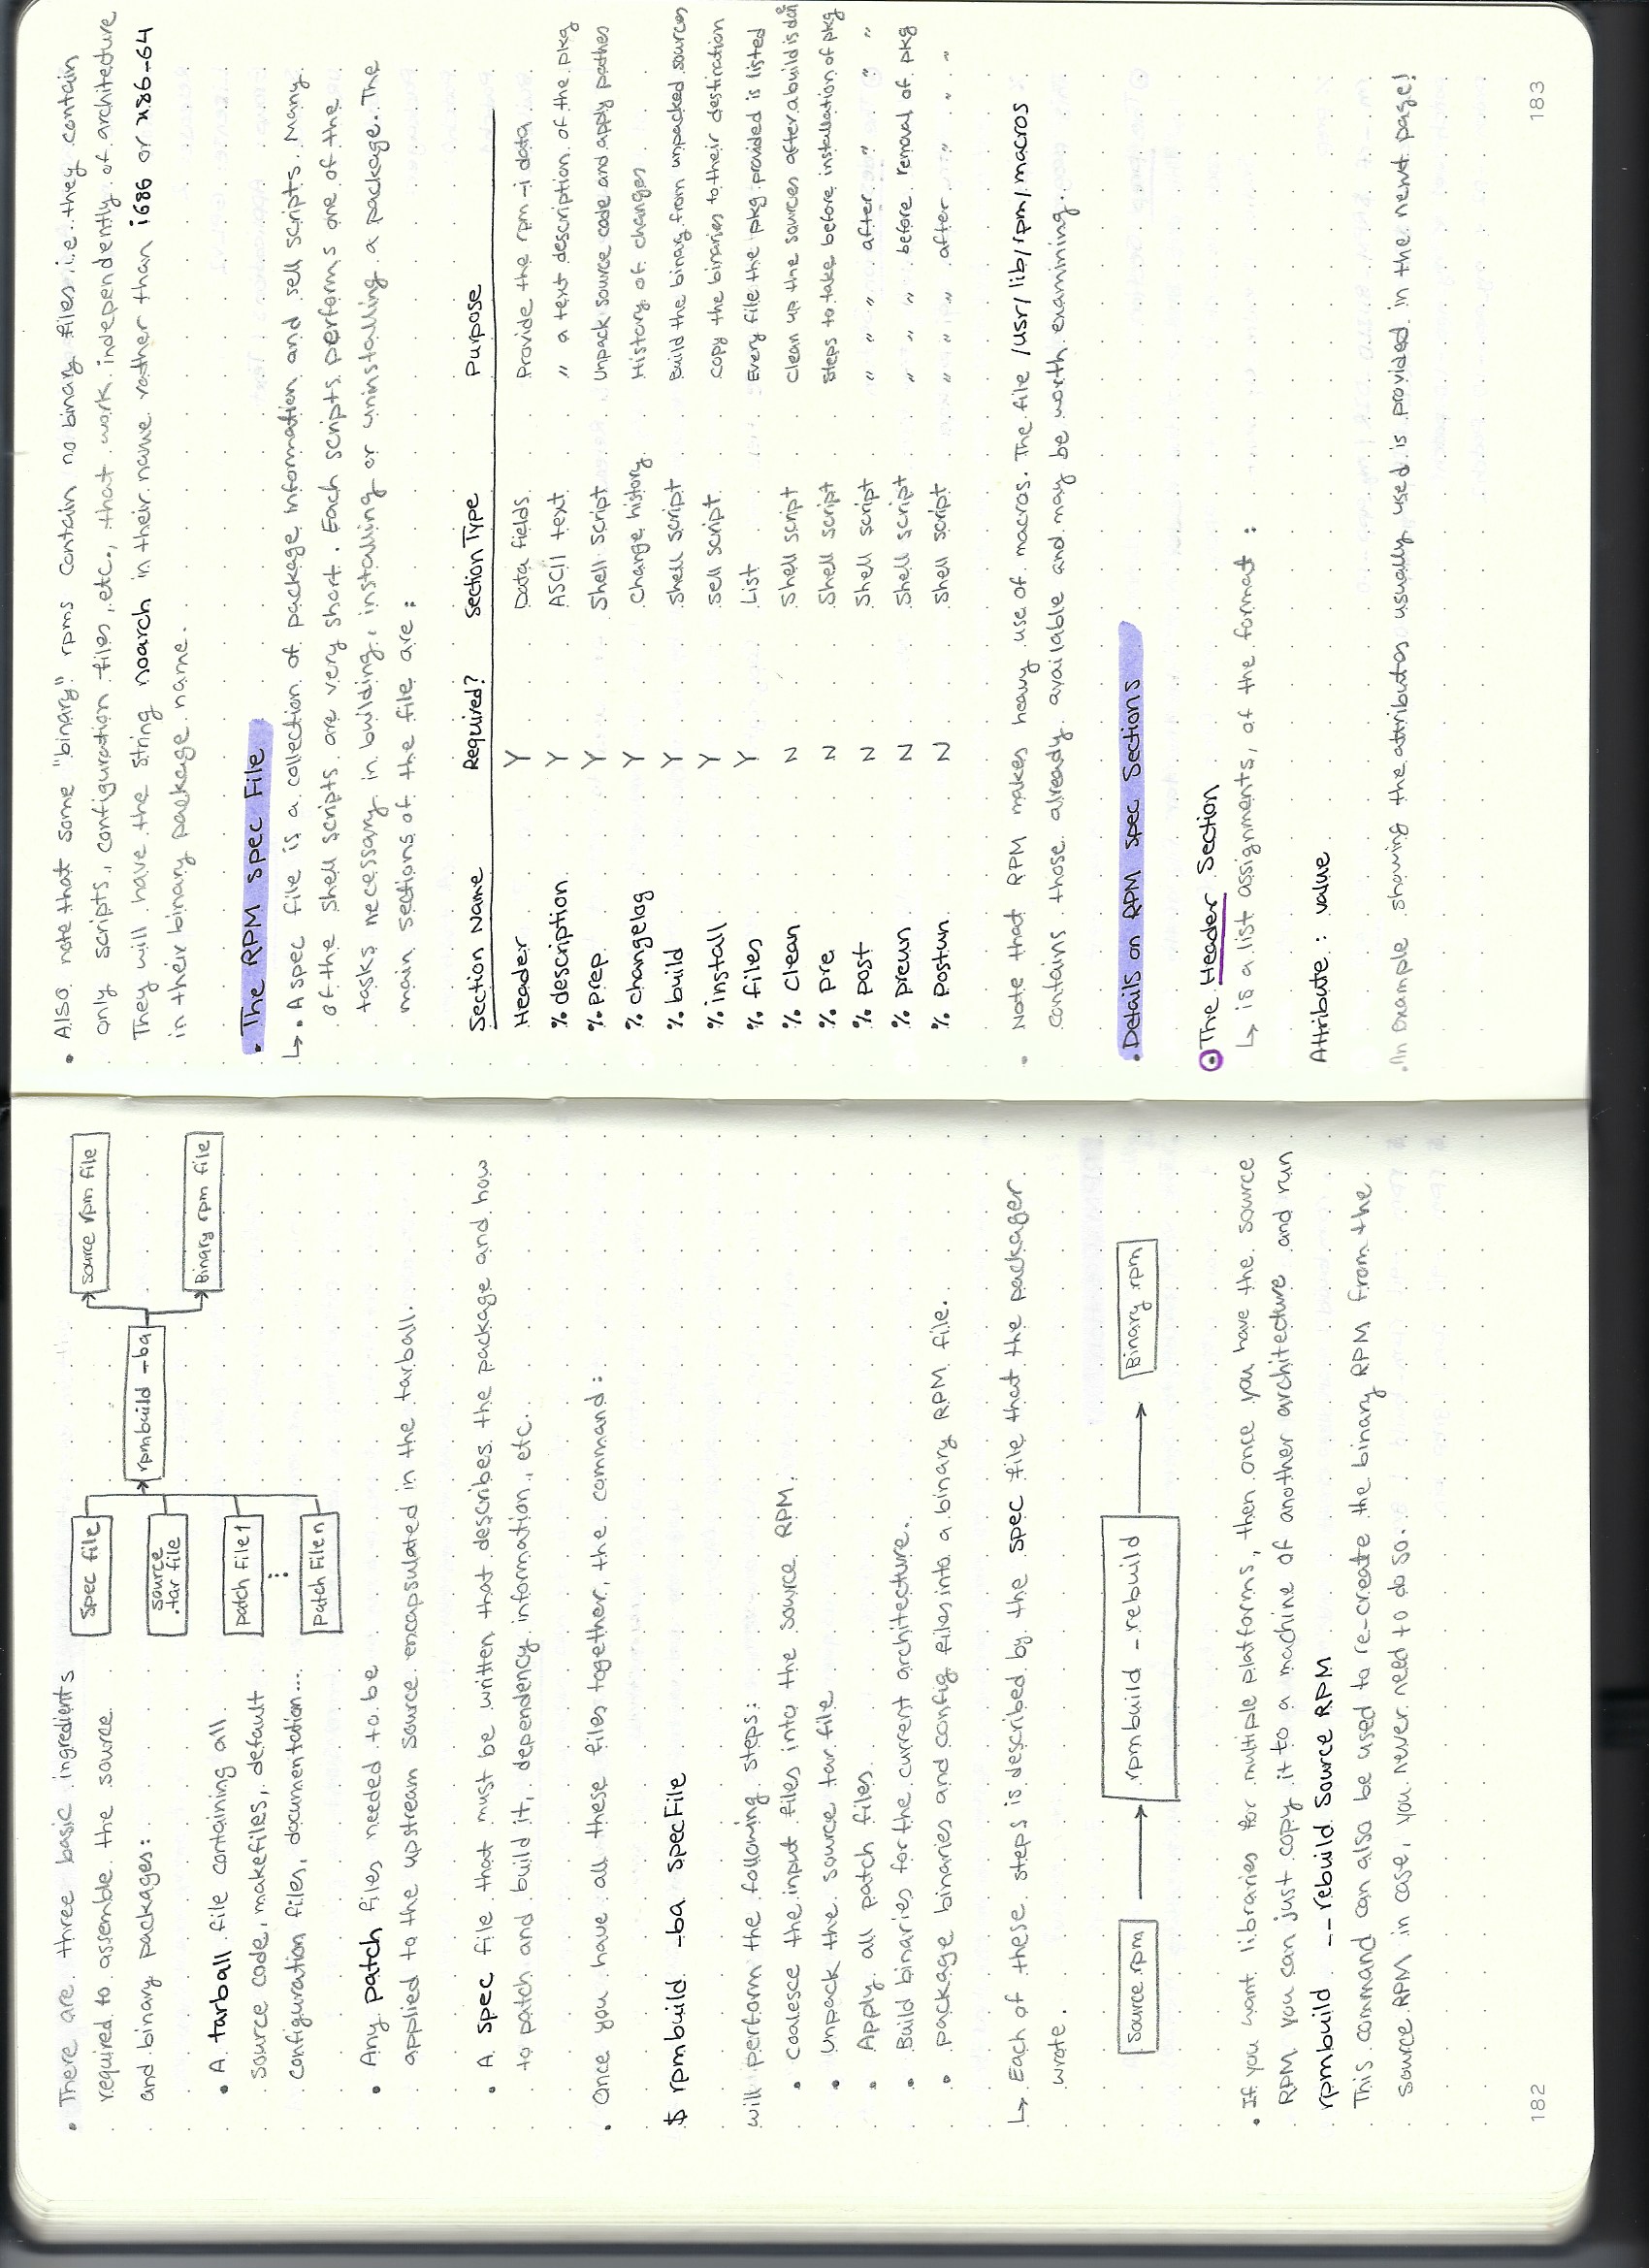 • There are three basic ingredients
required to assemble the source
and binary packages:
• A tarball file containing all
source code, makefiles, default
configuration files, documentation...
• Any patch files needed to be
applied to the upstream source encapsulated in the tarball.
Spec file
source
.tar file
patch File1
⋮
patch File n
rpmbuild -ba
source rpm file
Binary rpm file
• A spec file that must be written that describes the package and how
to patch and build it, dependency information, etc.
• Once you have all these files together, the command:
$ rpmbuild -ba specFile
will perform the following steps:
• Coalesce the input files into the source RPM.
• Unpack the source tar file
• Apply all patch files.
• Build binaries for the current architecture.
• package binaries and config files into a binary RPM file.
↳ Each of these steps is described by the spec file that the packager
wrote.
Source rpm → rpmbuild -rebuild → Binary rpm
• If you want libraries for multiple platforms, then once you have the source
RPM you can just copy it to a machine of another architecture and run
rpmbuild --rebuild source RPM
This command can also be used to re-create the binary RPM from the
source RPM in case, you never need to do so.
182
• Also note that some "binary" rpms contain no binary files i.e. they contain
only scripts, configuration files, etc., that work independently of architecture
They will have the string noarch in their name rather than i686 or x86-64
in their binary package name.
• The RPM spec File
↳ A spec file is a collection of package information and sell scripts. Many
of the shell scripts are very short. Each scripts performs one of the
tasks necessary in building, installing or uninstalling a package. The
main sections of the file are:
Section Name Required? Section Type Purpose
Header Y Data fields Provide the rpm -i data
% description Y ASCII text " a text description of the pkg
% prep Y Shell script Unpack source code and apply pathes
% changelog Y Change history History of changes
% build Y shell script Build the binary from unpacked sources
% install Y sell script copy the binaries to their destination
% files Y List Every file the pkg provided is listed
% clean N Shell script Clean up the sources after a build is don
% pre N Shell script Steps to take before installation of pkg
% post N Shell script " " " after " " "
% preun N Shell script " " " before removal of pkg
% postun N Shell script " " " after " " "
• Note that RPM makes heavy use of macros. The file /usr/lib/rpm/macros
contains those already available and may be worth examining.
• Details on RPM spec Sections
⊙ The Header Section
↳ is a list assignments, of the format:
Attribute: value
• An example showing the attributes usually used is provided in the next page!
183